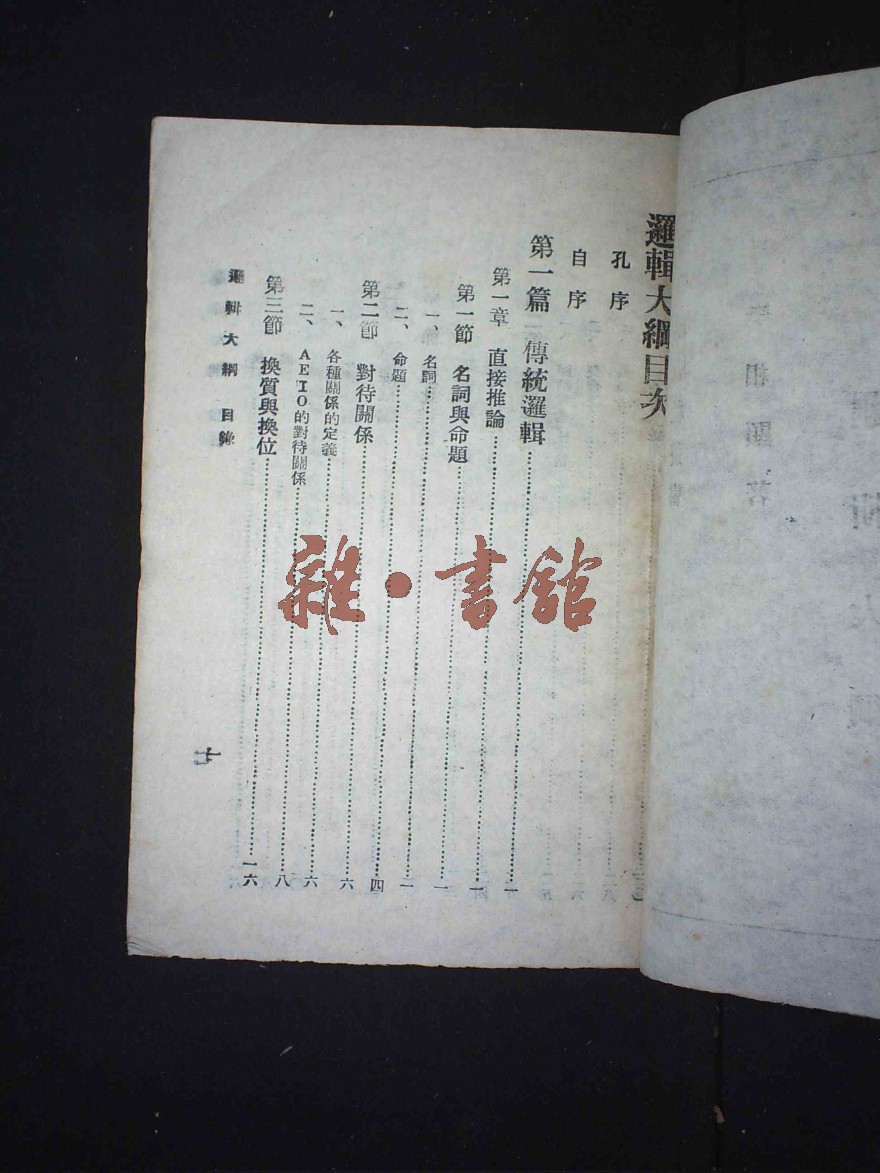 邏輯大綱目次
孔序
自序
第一篇 傳統邏輯……一
第一章 直接推論……一
第一節 名詞與命題……一
一、名詞……一
二、命題……四
第二節 對待關係……六
一、各種關係的定義……六
二、AEIO的對待關係……八
第三節 換質與換位……一六
邏輯大綱 目錄
七
雜·書館